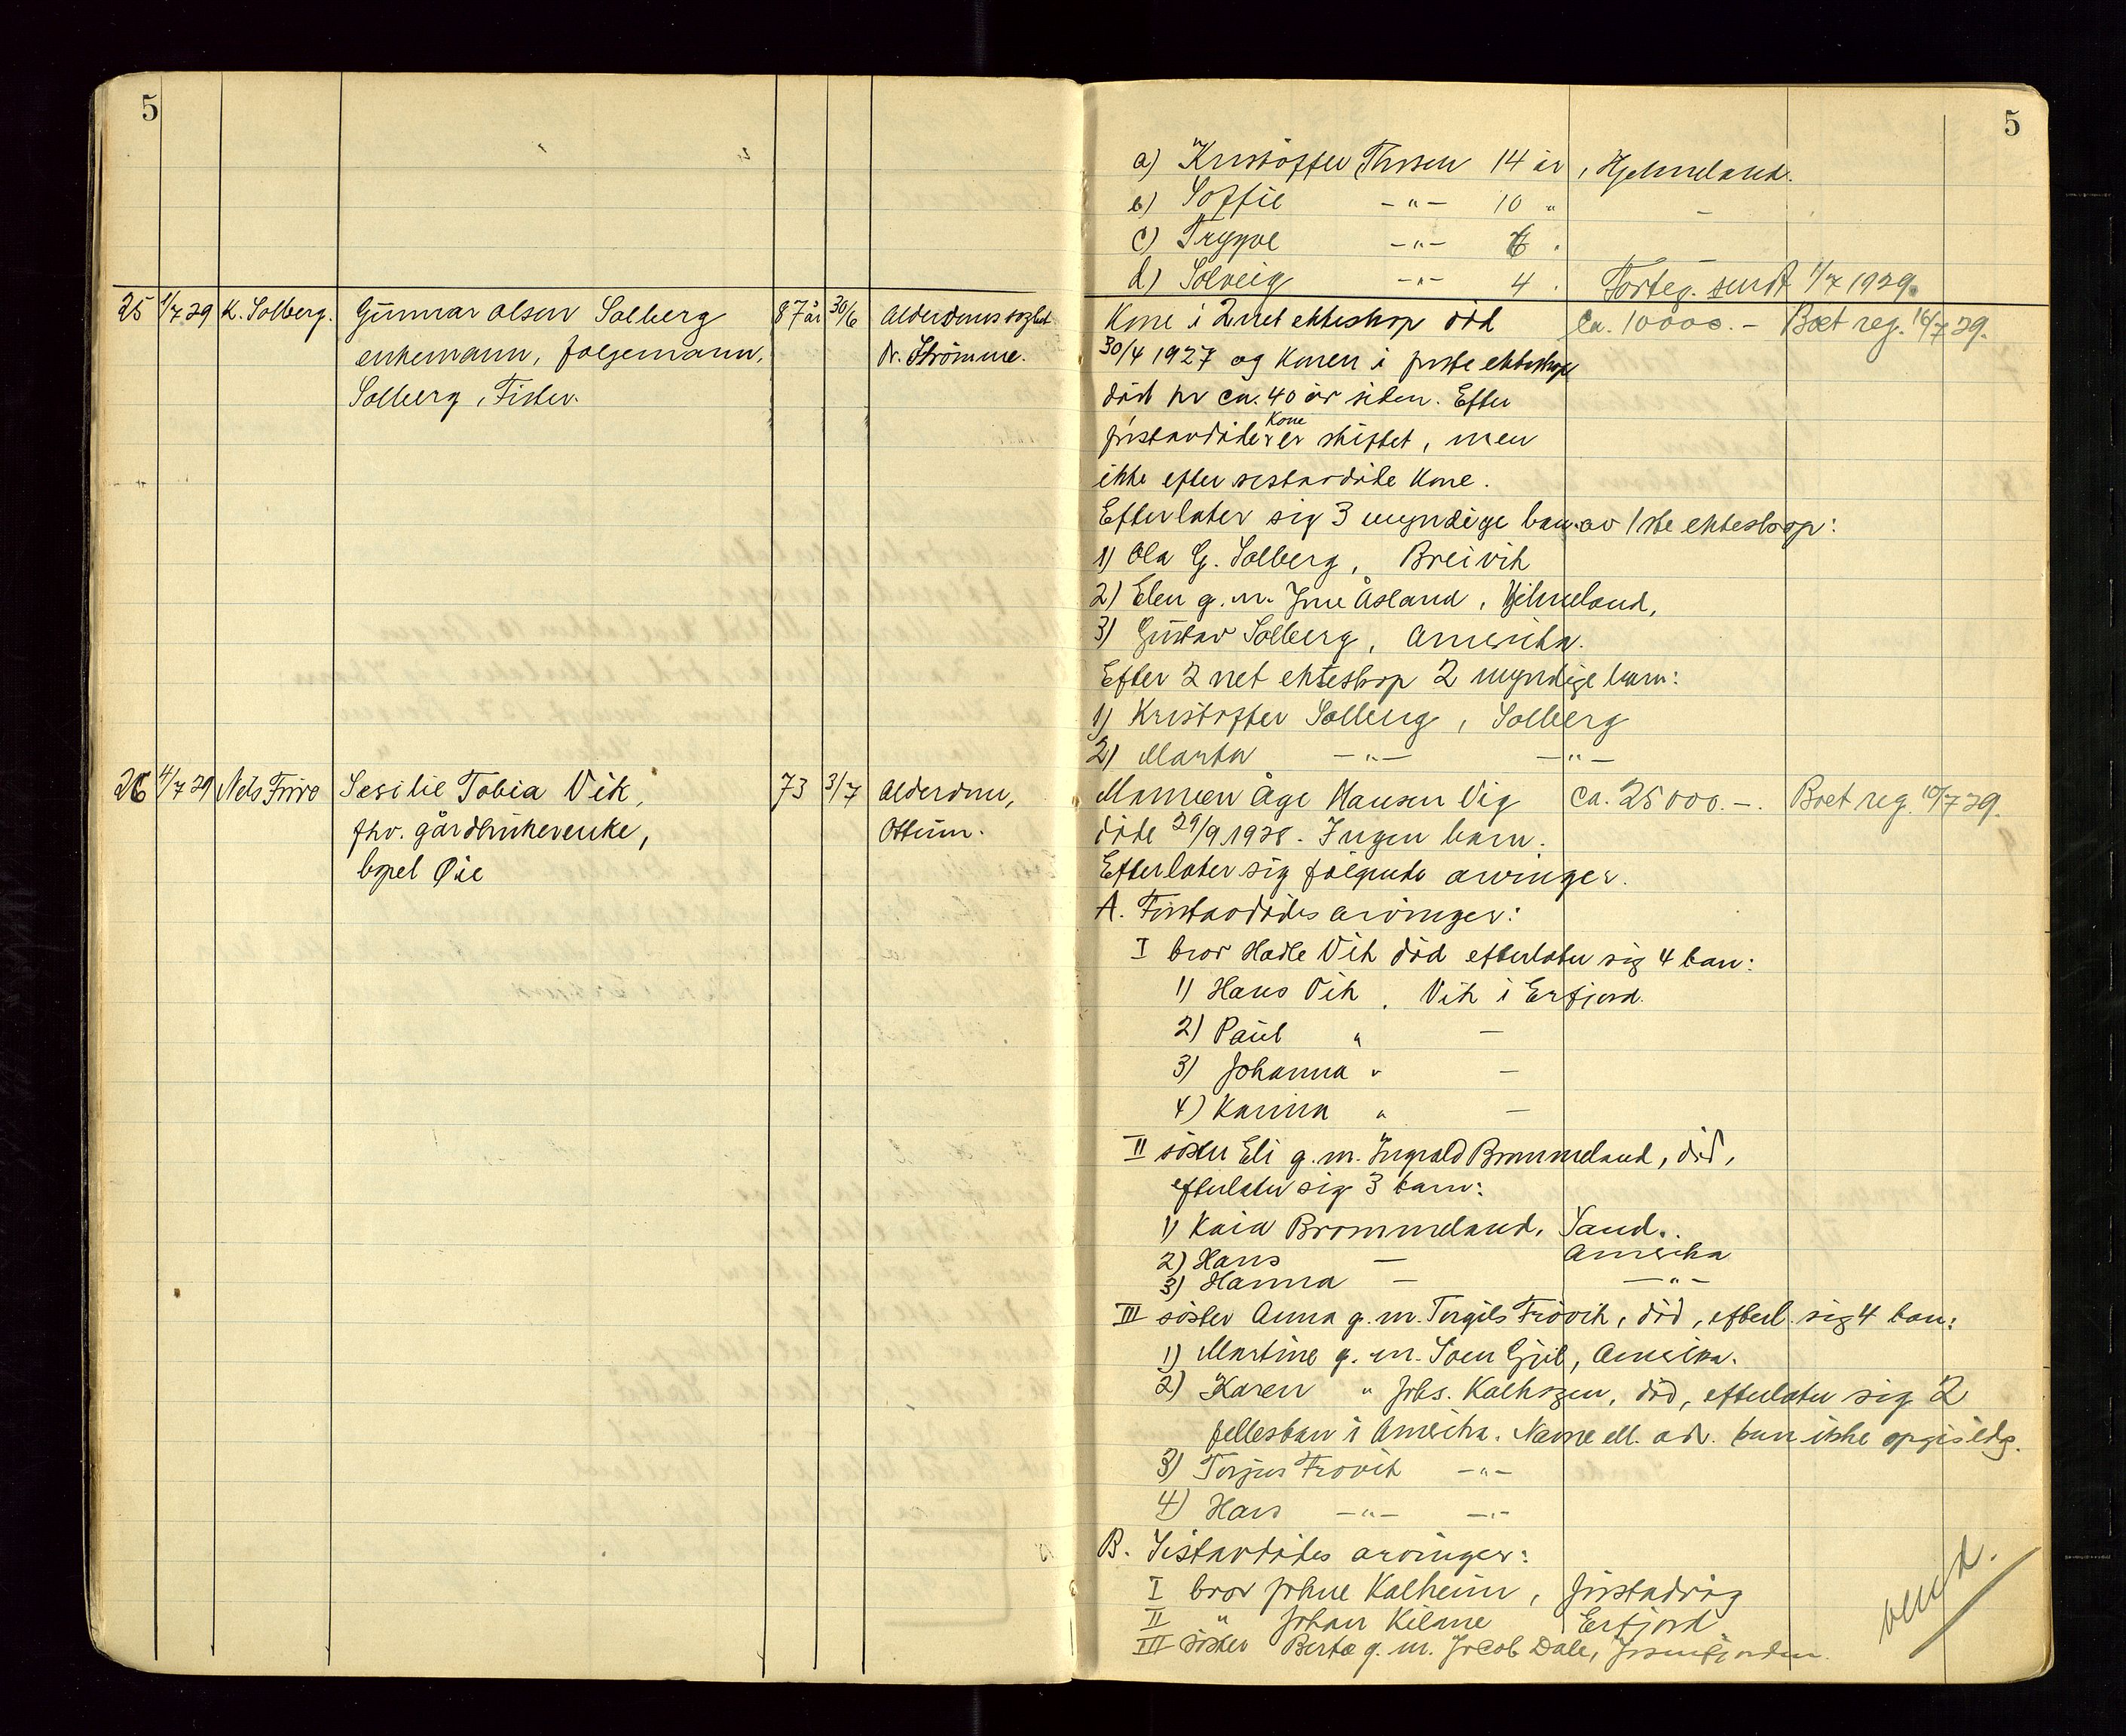 5
25 1/7 29 K. Solberg. Gunnar Olsen Solberg 87 år 30/6 Alderdomssvakhet
enkemann, følgemann, Dr. Strömme.
Solberg, Fister.
26 4/7 29 Nels Fuvo Sesilie Tobia Vik, 73 3/7 Alderdom,
fhv. gårdbrukerenke, Ottum.
bopel Øie
5
a) Kristoffer Thysen 14 år, Hjelmeland.
b) Soffie -"- 10 " -
c) Trygve -"- 6 .
d) Solveig -"- 4 . Forteg. sendt 1/7 1929.
Kone i 2net ekteskap död ca. 10000.- Boet reg. 16/7 29.
30/4 1927 og konen i förste ekteskap
död for ca. 40 år siden. Efter
förstavdöde kone er skiftet, men
ikke efter sistavdöde kone.
Efterlater sig 3 myndige barn av 1ste ekteskap:
1) Ola G. Solberg, Breivik
2) Elen g. m. Jone Åsland, Hjelmeland,
3) Gustav Solberg, Amerika.
Efter 2net ekteskap 2 myndige barn:
1) Kristoffer Solberg, Solberg
2) Marta -"- -"-
Mannen Åge Hansen Vig ca. 25000.-. Boet reg. 10/7 29.
döde 29/9 1928. Ingen barn.
Efterlater sig fölgende arvinger.
A. Förstavdödes arvinger:
I bror Hadle Vik död efterlater sig 4 barn:
1) Hans Vik, Vik i Erfjord.
2) Paul " -
3) Johanna " -
4) Karina " -
II söster Eli g. m. Ingvald Brommeland, död,
efterlater sig 3 barn:
1) Kaia Brommeland, Sand.
2) Hans - Amerika
3) Hanna - -"-
III söster Anna g. m. Torgils Frövik, död, efterl. sig 4 barn:
1) Martine g. m. Soen Gjil, Amerika.
2) Karen " Johs. Kalhagen, död, efterlater sig 2
fellesbarn i Amerika. Navne ell. adr. kan ikke opgis
3) Torjus Frövik -"-
4) Hans -"- -"-
B. Sistavdödes arvinger:
I bror Johne Kalheim, Jöstadvåg
II " Johan Kilane Erfjord
III söster Berta g. m. Jacob Dale, Jösenfjorden.
vend.